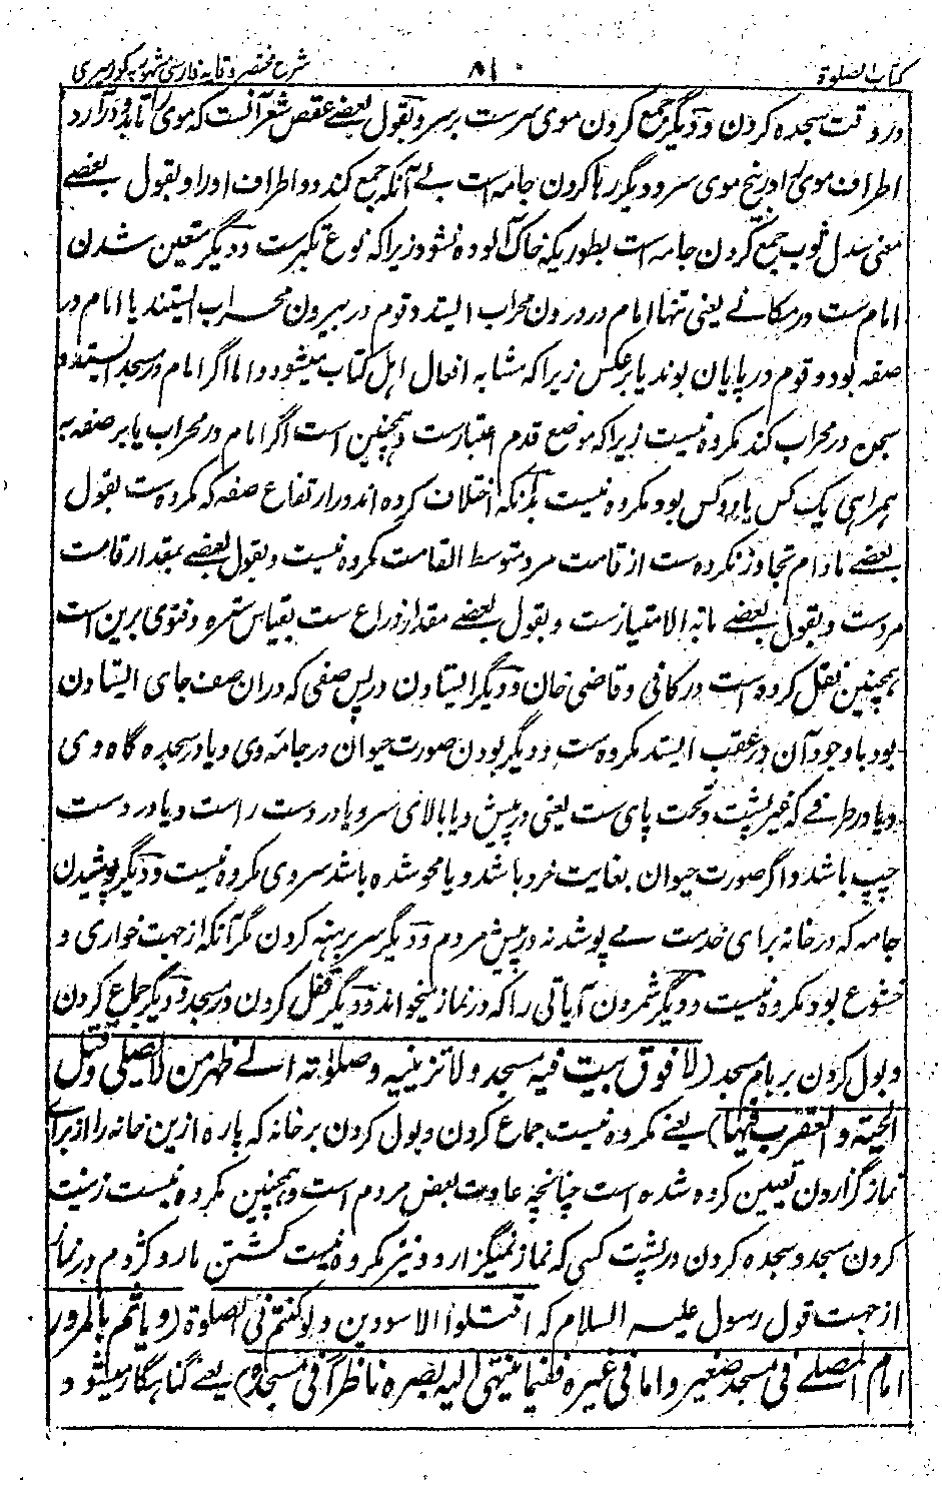 کتاب الصلوة ۸۱ شرح مختصر وقایه فارسی مشهور به کورمیری
در وقت سجده کردن و دیگر جمع کردن موی سرست بر سر و بقول بعضے عقص شعر آنست که موی را تاب درآرد
اطراف موی را در بیخ موی سر و دیگر رها کردن جامه است بے آنکه جمع کند دو اطراف او را و بقول بعضے
معنی سدل ثوب جمع کردن جامه است بطوریکه خاک آلوده نشود زیرا که نوع تکبرست و دیگر متعین شدن
امام ست در مکانے یعنی تنها امام در درون محراب ایستد و قوم در بیرون محراب ایستند یا امام در
صفه بود و قوم در پایان بوند یا برعکس زیرا که مشابه افعال اهل کتاب میشود و اما اگر امام در مسجد ایستد و
سجده در محراب کند مکروه نیست زیرا که موضع قدم اعتبارست و همچنین است اگر امام در محراب یا بر صفه به
همراهی یک کس یا دو کس بود مکروه نیست اختلاف کرده اند در ارتفاع صفه که مکروه ست بقول
بعضے مادام تجاوز نکرده ست از قامت مرد متوسط القامت مکروه نیست و بقول بعضے بمقدار قامت
مردست و بقول بعضے مابه الامتیازست و بقول بعضے مقدار ذراع ست بقیاس ستره و فتوی برین است
همچنین نقل کرده است در کافی و قاضی خان و دیگر ایستادن در پس صفی که دران صف جای ایستادن
بود با وجود آن در عقب ایستد مکروه ست و دیگر بودن صورت حیوان در جامه وی و یا در سجده گاه وی
و یا در طرفے که غیر پشت و تحت پای ست یعنی در پیش و یا بالای سر و یا در دست راست و یا در دست
چپ باشد و اگر صورت حیوان بغایت خرد باشد و یا محو شده باشد سر وی مکروه نیست و دیگر پوشیدن
جامه که در خانه برای خدمت مے پوشد نه در پیش مردم و دیگر سر برهنه کردن مگر آنکه از جهت خواری و
خشوع بود مکروه نیست و دیگر شمردن آیاتی را که در نماز میخواند و دیگر قفل کردن در مسجد و دیگر جماع کردن
و بول کردن بر بام مسجد (لا فوق بیت فیه مسجد ولا تزیینه وصلوته الے ظهر من لا یصلی وقتل
الحیة والعقرب فیها) یعنے مکروه نیست جماع کردن و بول کردن بر خانه که پاره ازین خانه را از برای
نماز گزاردن تعیین کرده شده است چنانچه عادت بعض مردم است و همچنین مکروه نیست زینت
کردن مسجد و سجده کردن در پشت کسی که نماز نمیگزارد و نیز مکروه نیست کشتن مار و کژدم در نماز
از جهت قول رسول علیه السلام که اقتلوا الاسودین ولو کنتم فی الصلوة (ویاثم بالمرور
امام المصلے فی مسجد صغیر واما فی غیره ففیما ینتهی الیه بصره ناظرا فی مسجده) یعنے گناهگار میشود و